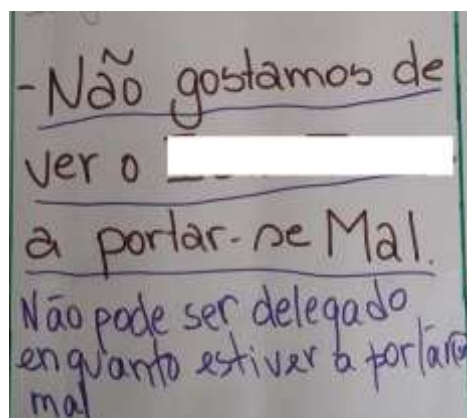 -Não gostamos de
ver o
a portar-se Mal.
Não pode ser delegado
enquanto estiver a portar
mal